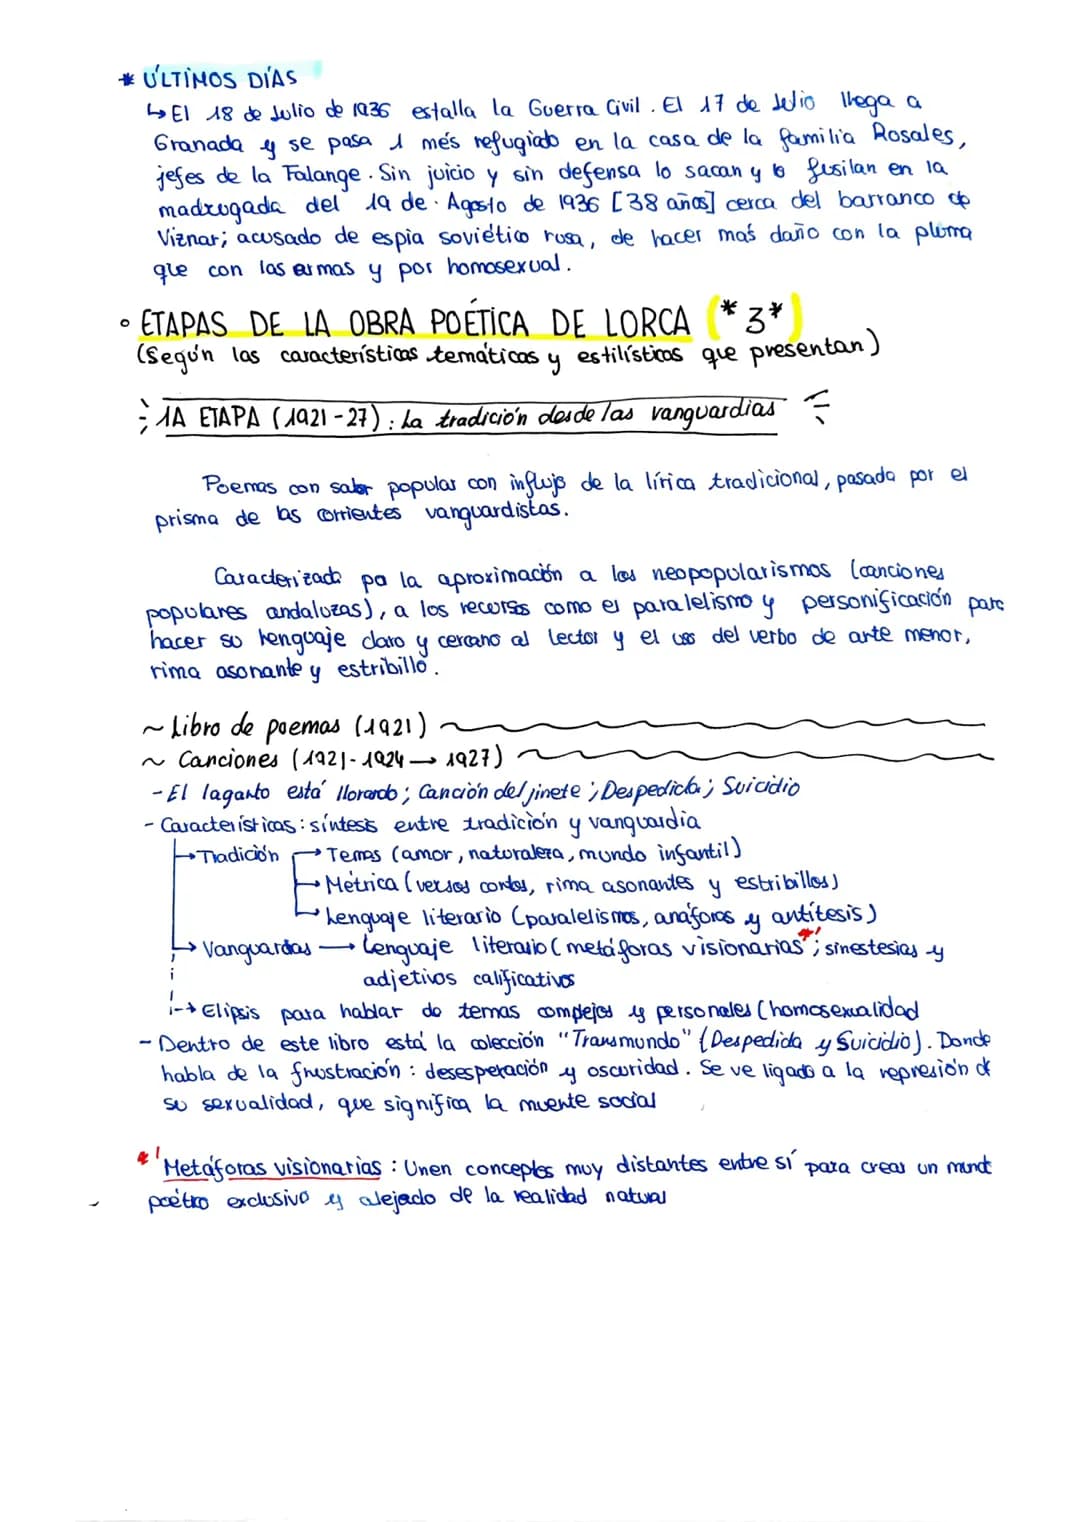 * ÚLTIMOS DÍAS
↳ El 18 de Julio de 1936 estalla la Guerra Civil. El 17 de Julio llega a
Granada y se pasa 1 més refugiado en la casa de la familia Rosales,
jefes de la Falange. Sin juicio y sin defensa lo sacan y lo fusilan en la
madrugada del 19 de Agosto de 1936 [38 años] cerca del barranco de
Viznar; acusado de espía soviético rusa, de hacer más daño con la pluma
que con las armas y por homosexual.
° ETAPAS DE LA OBRA POÉTICA DE LORCA (*3*)
(Según las características temáticas y estilísticas que presentan)
1A ETAPA (1921-27): La tradición desde las vanguardias
Poemas con sabor popular con influjo de la lírica tradicional, pasada por el
prisma de las corrientes vanguardistas.
Caracterizada po la aproximación a los neopopularismos (canciones
populares andaluzas), a los recursos como el paralelismo y personificación para
hacer su lenguaje claro y cercano al lector y el uso del verbo de arte menor,
rima asonante y estribillo.
~ Libro de poemas (1921)
~ Canciones (1921-1924 → 1927)
- El lagarto está llorando; Canción del jinete; Despedida; Suicidio
- Características: síntesis entre tradición y vanguardia
→ Tradición → Temas (amor, naturaleza, mundo infantil)
→ Métrica (versos cortos, rima asonantes y estribillos)
→ Lenguaje literario (paralelismos, anáforas y antítesis)
→ Vanguardas → Lenguaje literario (metáforas visionarias*'; sinestesias y
adjetivos calificativos
→ Elipsis para hablar de temas complejos y personales (homosexualidad
- Dentro de este libro está la colección "Transmundo" (Despedida y Suicidio). Donde
habla de la frustración: desesperación y oscuridad. Se ve ligado a la represión de
su sexualidad, que significa la muerte social
*' Metáforas visionarias: Unen conceptos muy distantes entre sí para crear un mundo
poético exclusivo y alejado de la realidad natural